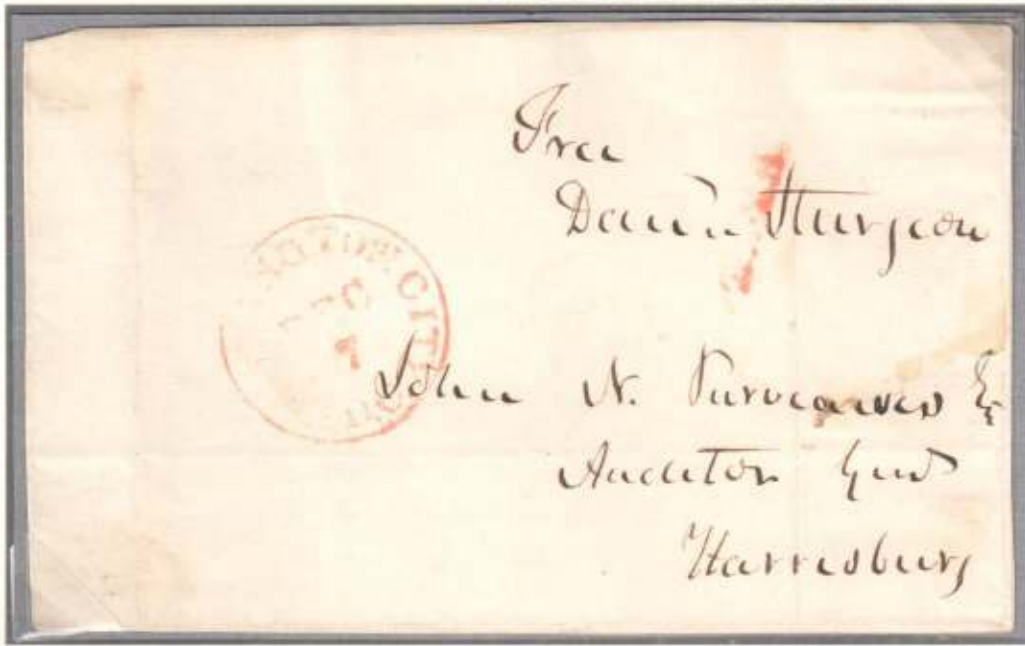 Free
Dan'l Sturgeon
CITY
DEC
John N. Purviance Esq
Auditor Genl
Harrisburg